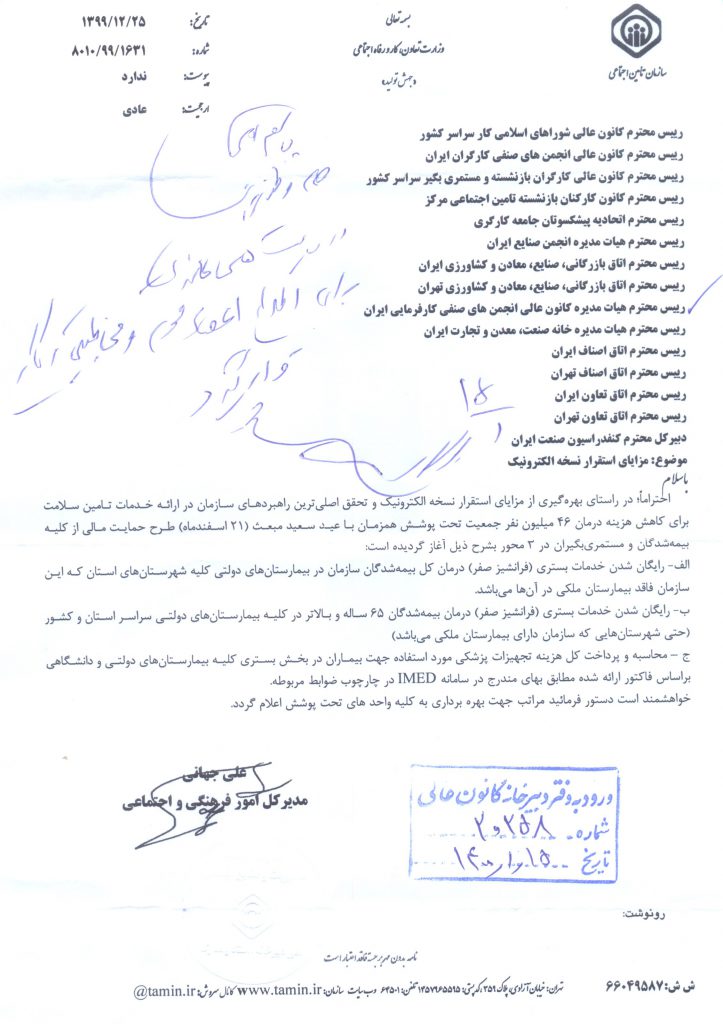 بسمه تعالی
وزارت تعاون، کار و رفاه اجتماعی
«جهش تولید»
سازمان تأمین اجتماعی
تاریخ: ۱۳۹۹/۱۲/۲۵
شماره: ۸۰۱۰/۹۹/۱۶۳۱
پیوست: ندارد
ارجحیت: عادی
رییس محترم کانون عالی شوراهای اسلامی کار سراسر کشور
رییس محترم کانون عالی انجمن های صنفی کارگران ایران
رییس محترم کانون عالی کارگران بازنشسته و مستمری بگیر سراسر کشور
رییس محترم کانون کارکنان بازنشسته تامین اجتماعی مرکز
رییس محترم اتحادیه پیشکسوتان جامعه کارگری
رییس محترم هیات مدیره انجمن صنایع ایران
رییس محترم اتاق بازرگانی، صنایع، معادن و کشاورزی ایران
رییس محترم اتاق بازرگانی، صنایع، معادن و کشاورزی تهران
رییس محترم هیات مدیره کانون عالی انجمن های صنفی کارفرمایی ایران
رییس محترم هیات مدیره خانه صنعت، معدن و تجارت ایران
رییس محترم اتاق اصناف ایران
رییس محترم اتاق اصناف تهران
رییس محترم اتاق تعاون ایران
رییس محترم اتاق تعاون تهران
دبیرکل محترم کنفدراسیون صنعت ایران
موضوع: مزایای استقرار نسخه الکترونیک
باسلام
احتراماً؛ در راستای بهره‌گیری از مزایای استقرار نسخه الکترونیک و تحقق اصلی‌ترین راهبردهای سازمان در ارائه خدمات تامین سلامت
برای کاهش هزینه درمان ۴۶ میلیون نفر جمعیت تحت پوشش همزمان با عید سعید مبعث (۲۱ اسفندماه) طرح حمایت مالی از کلیه
بیمه‌شدگان و مستمری‌بگیران در ۳ محور بشرح ذیل آغاز گردیده است:
الف- رایگان شدن خدمات بستری (فرانشیز صفر) درمان کل بیمه‌شدگان سازمان در بیمارستان‌های دولتی کلیه شهرستان‌های استان که این
سازمان فاقد بیمارستان ملکی در آن‌ها می‌باشد.
ب- رایگان شدن خدمات بستری (فرانشیز صفر) درمان بیمه‌شدگان ۶۵ ساله و بالاتر در کلیه بیمارستان‌های دولتی سراسر استان و کشور
(حتی شهرستان‌هایی که سازمان دارای بیمارستان ملکی می‌باشد)
ج – محاسبه و پرداخت کل هزینه تجهیزات پزشکی مورد استفاده جهت بیماران در بخش بستری کلیه بیمارستان‌های دولتی و دانشگاهی
براساس فاکتور ارائه شده مطابق بهای مندرج در سامانه IMED در چارچوب ضوابط مربوطه.
خواهشمند است دستور فرمائید مراتب جهت بهره برداری به کلیه واحد های تحت پوشش اعلام گردد.
علی جهانی
مدیرکل امور فرهنگی و اجتماعی
ورود به دفتر دبیرخانه کانون عالی
شماره
تاریخ
رونوشت:
نامه بدون مهر برجسته فاقد اعتبار است
تهران: خیابان آزادی، پلاک ۳۵۹، کدپستی: ۱۴۵۷۹۶۵۵۹۵ تلفن: ۶۴۵۰۱ وب سایت سازمان: www.tamin.ir کانال سروش: @tamin.ir
ش ش: ۶۶۰۴۹۵۸۷